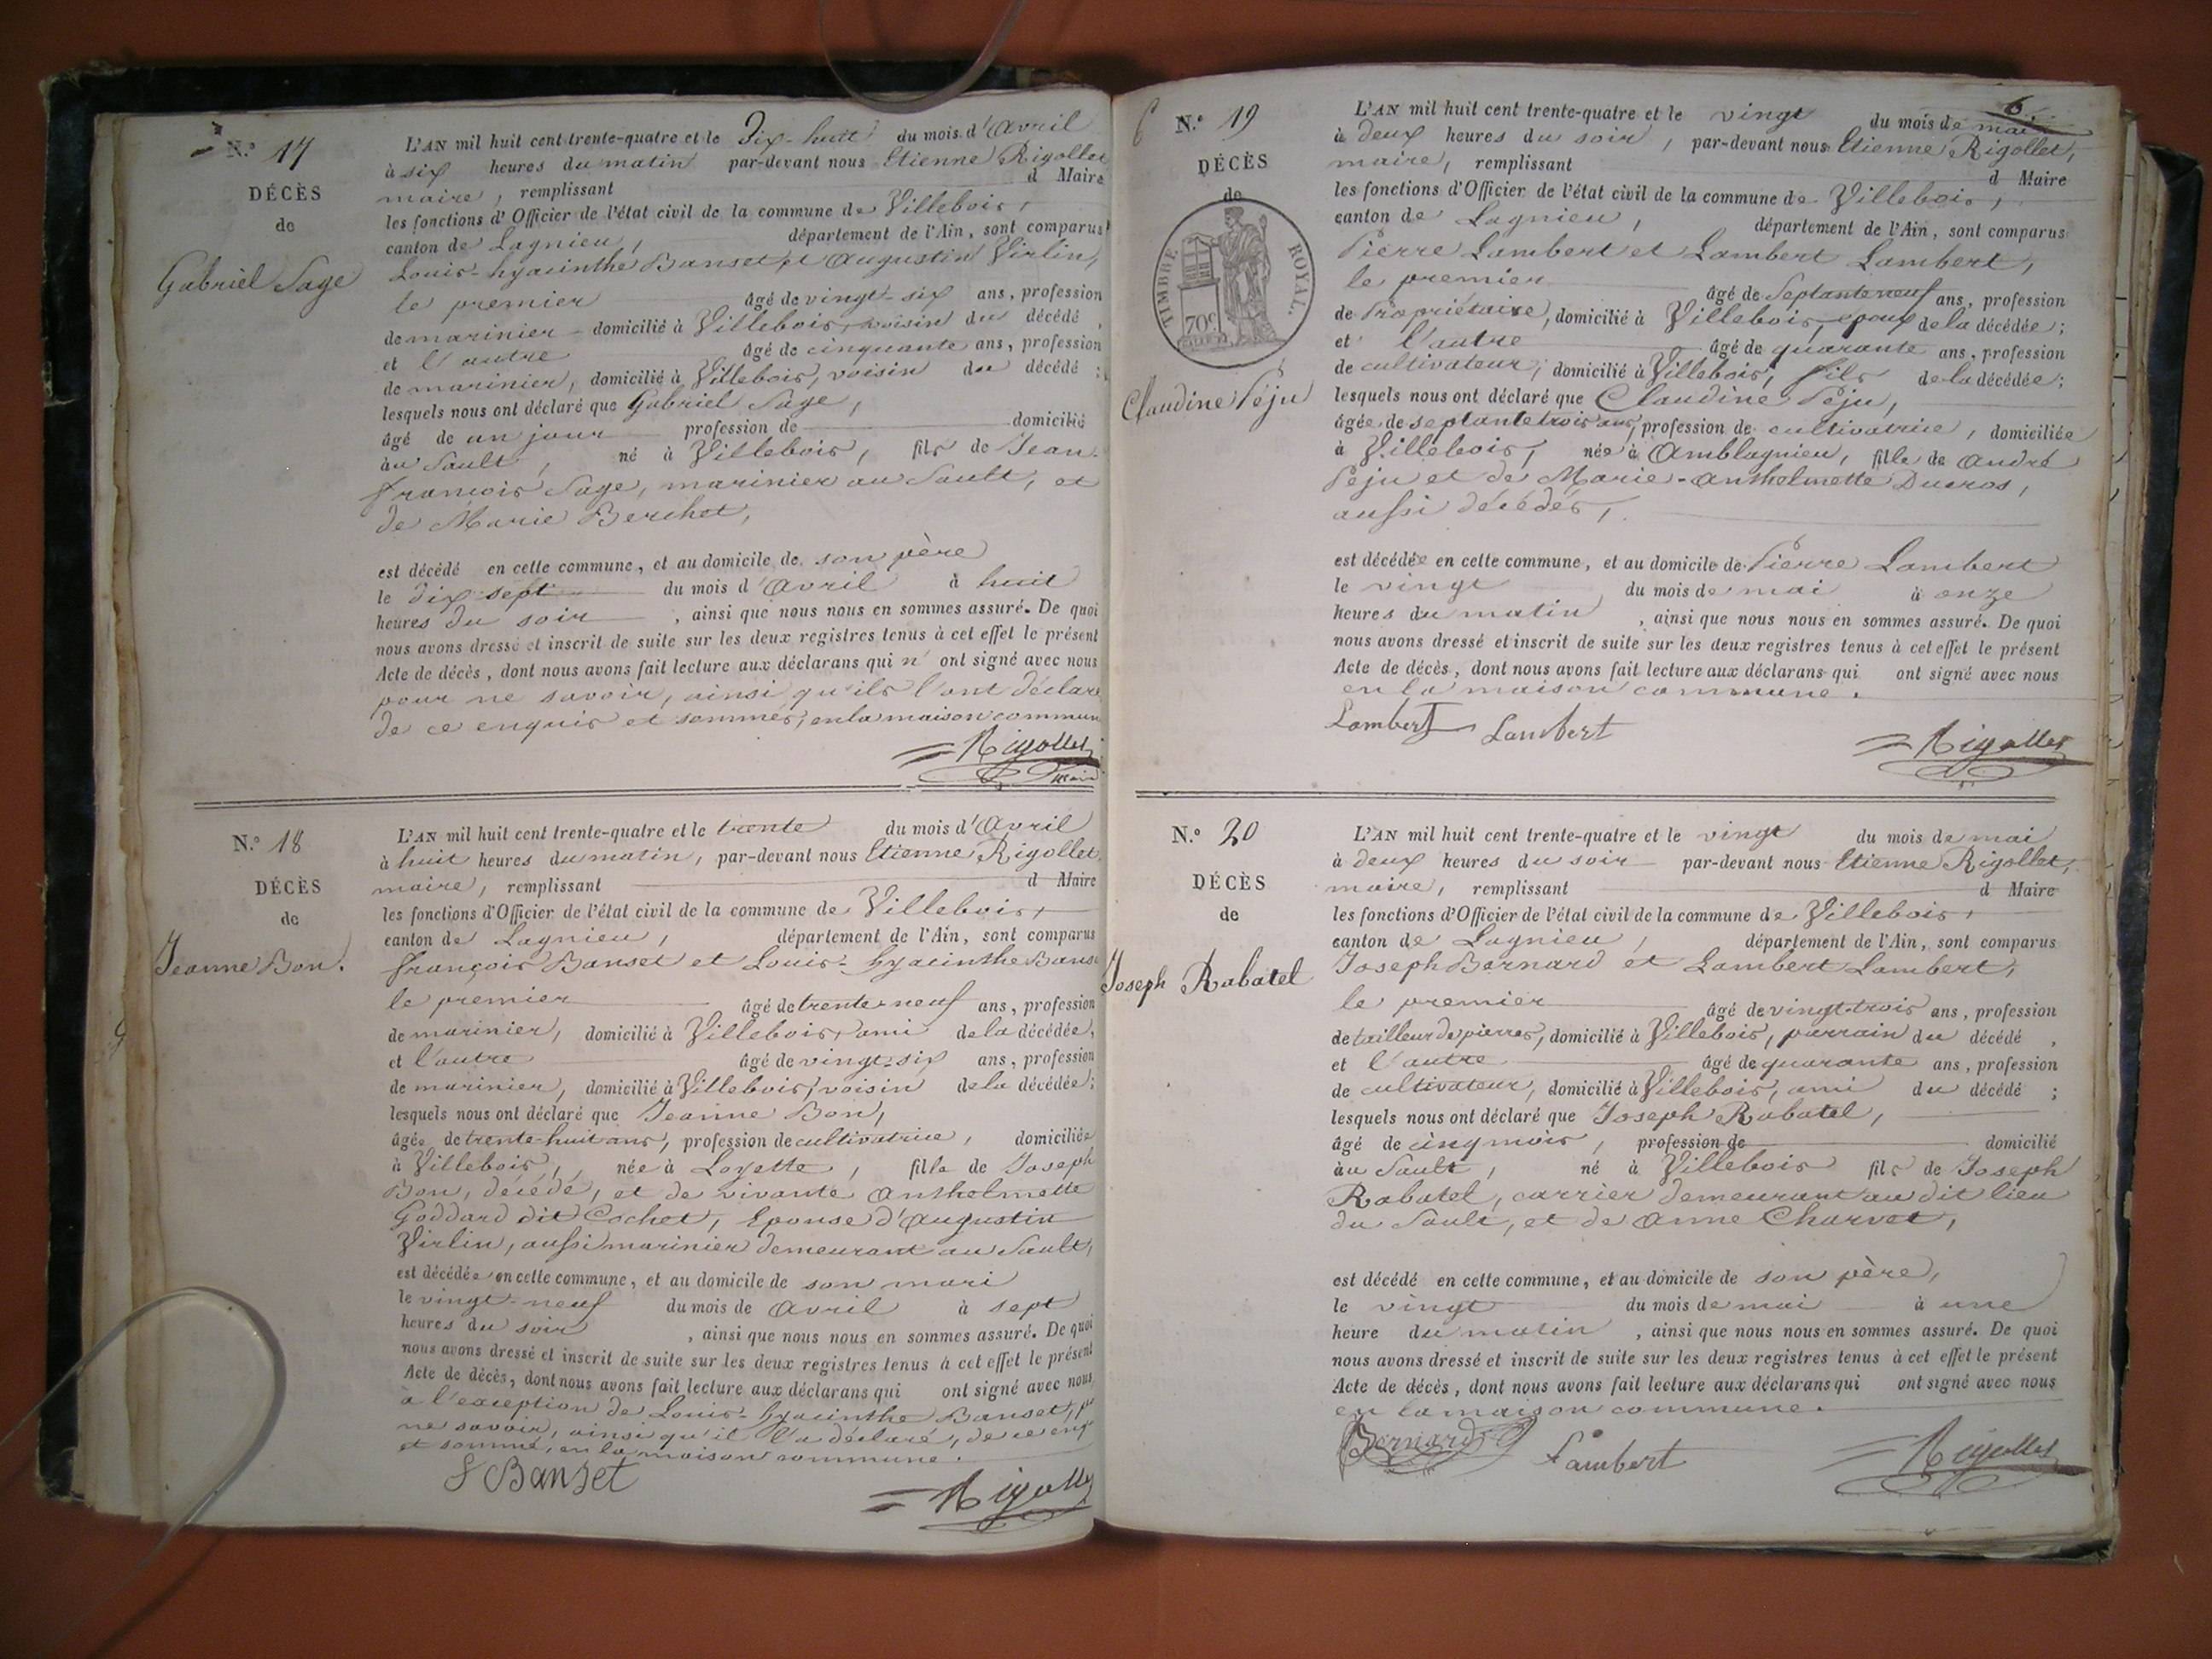 N.º 17
DÉCÈS
de
Gabriel Sage
L'AN mil huit cent trente-quatre et le Dix-huit du mois d'Avril
à six heures du matin par-devant nous Etienne Rigollet
maire, remplissant d Maire
les fonctions d'Officier de l'état civil de la commune de Villebois,
canton de Lagnieu, département de l'Ain, sont comparus
Louis-hyacinthe Banset et Augustin Virlin,
le premier âgé de vingt-six ans, profession
de marinier domicilié à Villebois, voisin du décédé,
et l'autre âgé de cinquante ans, profession
de marinier, domicilié à Villebois, voisin du décédé;
lesquels nous ont déclaré que Gabriel Sage,
âgé de un jour profession de domicilié
au Sault, né à Villebois, fils de Jean-
françois Sage, marinier au Sault, et
de Marie Berchet,
est décédé en cette commune, et au domicile de son père
le dix sept du mois d'Avril à huit
heures du soir, ainsi que nous nous en sommes assuré. De quoi
nous avons dressé et inscrit de suite sur les deux registres tenus à cet effet le présent
Acte de décès, dont nous avons fait lecture aux déclarans qui n'ont signé avec nous
pour ne savoir, ainsi qu'ils l'ont déclaré
de ce enquis et sommés, en la maison commun
Rigollet
maire
N.º 18
DÉCÈS
de
Jeanne Bon.
L'AN mil huit cent trente-quatre et le trente du mois d'Avril
à huit heures du matin, par-devant nous Etienne Rigollet
maire, remplissant d Maire
les fonctions d'Officier de l'état civil de la commune de Villebois,
canton de Lagnieu, département de l'Ain, sont comparus
françois Banset et Louis-hyacinthe Banse
le premier âgé de trente-neuf ans, profession
de marinier, domicilié à Villebois, ami de la décédée,
et l'autre âgé de vingt-six ans, profession
de marinier, domicilié à Villebois, voisin de la décédée;
lesquels nous ont déclaré que Jeanne Bon,
âgée de trente-huit ans, profession de cultivatrice, domiciliée
à Villebois, née à Loyette, fille de Joseph
Bon, décédé, et de vivante Anthelmette
Goddard dit Cochet, Epouse d'Augustin
Virlin, aussi marinier demeurant au Sault,
est décédée en cette commune, et au domicile de son mari
le vingt-neuf du mois de Avril à sept
heures du soir, ainsi que nous nous en sommes assuré. De quoi
nous avons dressé et inscrit de suite sur les deux registres tenus à cet effet le présent
Acte de décès, dont nous avons fait lecture aux déclarans qui ont signé avec nous
à l'exception de Louis-hyacinthe Banset,
ne savoir, ainsi qu'il l'a déclaré, de ce enq
et sommé, en la maison commune.
f Banset
Rigollet
6
6
N.º 19
DÉCÈS
de
TIMBRE ROYAL.
70c
Claudine Péju
L'AN mil huit cent trente-quatre et le vingt du mois de mai
à deux heures du soir, par-devant nous Etienne Rigollet,
maire, remplissant d Maire
les fonctions d'Officier de l'état civil de la commune de Villebois,
canton de Lagnieu, département de l'Ain, sont comparus
Pierre Lambert et Lambert Lambert,
le premier âgé de Septante neuf ans, profession
de Propriétaire, domicilié à Villebois, epoux de la décédée;
et l'autre âgé de quarante ans, profession
de cultivateur, domicilié à Villebois, fils de la décédée;
lesquels nous ont déclaré que Claudine Péju,
âgée de septante trois ans, profession de cultivatrice, domiciliée
à Villebois, née à Amblagnieu, fille de André
Péju et de Marie-Anthelmette Ducros,
aussi décédés,
est décédée en cette commune, et au domicile de Pierre Lambert
le vingt du mois de mai à onze
heures du matin, ainsi que nous nous en sommes assuré. De quoi
nous avons dressé et inscrit de suite sur les deux registres tenus à cet effet le présent
Acte de décès, dont nous avons fait lecture aux déclarans qui ont signé avec nous
en la maison commune.
Lambert Lambert Rigollet
N.º 20
DÉCÈS
de
Joseph Rabatel
L'AN mil huit cent trente-quatre et le vingt du mois de mai
à deux heures du soir par-devant nous Etienne Rigollet,
maire, remplissant d Maire
les fonctions d'Officier de l'état civil de la commune de Villebois,
canton de Lagnieu, département de l'Ain, sont comparus
Joseph Bernard et Lambert Lambert,
le premier âgé de vingt-trois ans, profession
de tailleur de pierres, domicilié à Villebois, parrain du décédé,
et l'autre âgé de quarante ans, profession
de cultivateur, domicilié à Villebois, ami du décédé;
lesquels nous ont déclaré que Joseph Rabatel,
âgé de cinq mois, profession de domicilié
au Sault, né à Villebois fils de Joseph
Rabatel, carrier demeurant au dit lieu
du Sault, et de Anne Charvet,
est décédé en cette commune, et au domicile de son père,
le vingt du mois de mai à une
heure du matin, ainsi que nous nous en sommes assuré. De quoi
nous avons dressé et inscrit de suite sur les deux registres tenus à cet effet le présent
Acte de décès, dont nous avons fait lecture aux déclarans qui ont signé avec nous
en la maison commune.
Bernard Lambert Rigollet